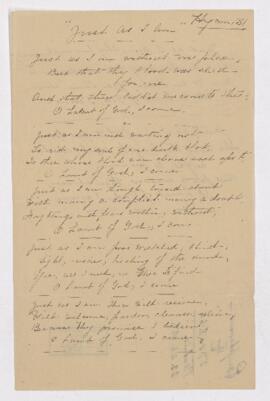 "Hymn 151
"Just As I Am
Just as I am without one plea,
But that thy blood was shed
for me
And that thou bidst me come to thee
O Lamb of God, I come
Just as I am and waiting not
To rid my soul of one dark blot,
To thee whose blood can cleanse each spot
O Lamb of God, I come
Just as I am though tossed about
With many a conflict, many a doubt
Fightings and fears within, without,
O Lamb of God, I come
Just as I am poor wretched, blind
Sight, riches, healing of the mind,
Yea, all I need, in Thee to find
O Lamb of God, I come
Just as I am Thou wilt receive,
Wilt welcome, pardon, cleanse, relieve,
Because thy promise I believe
O Lamb of God, I come